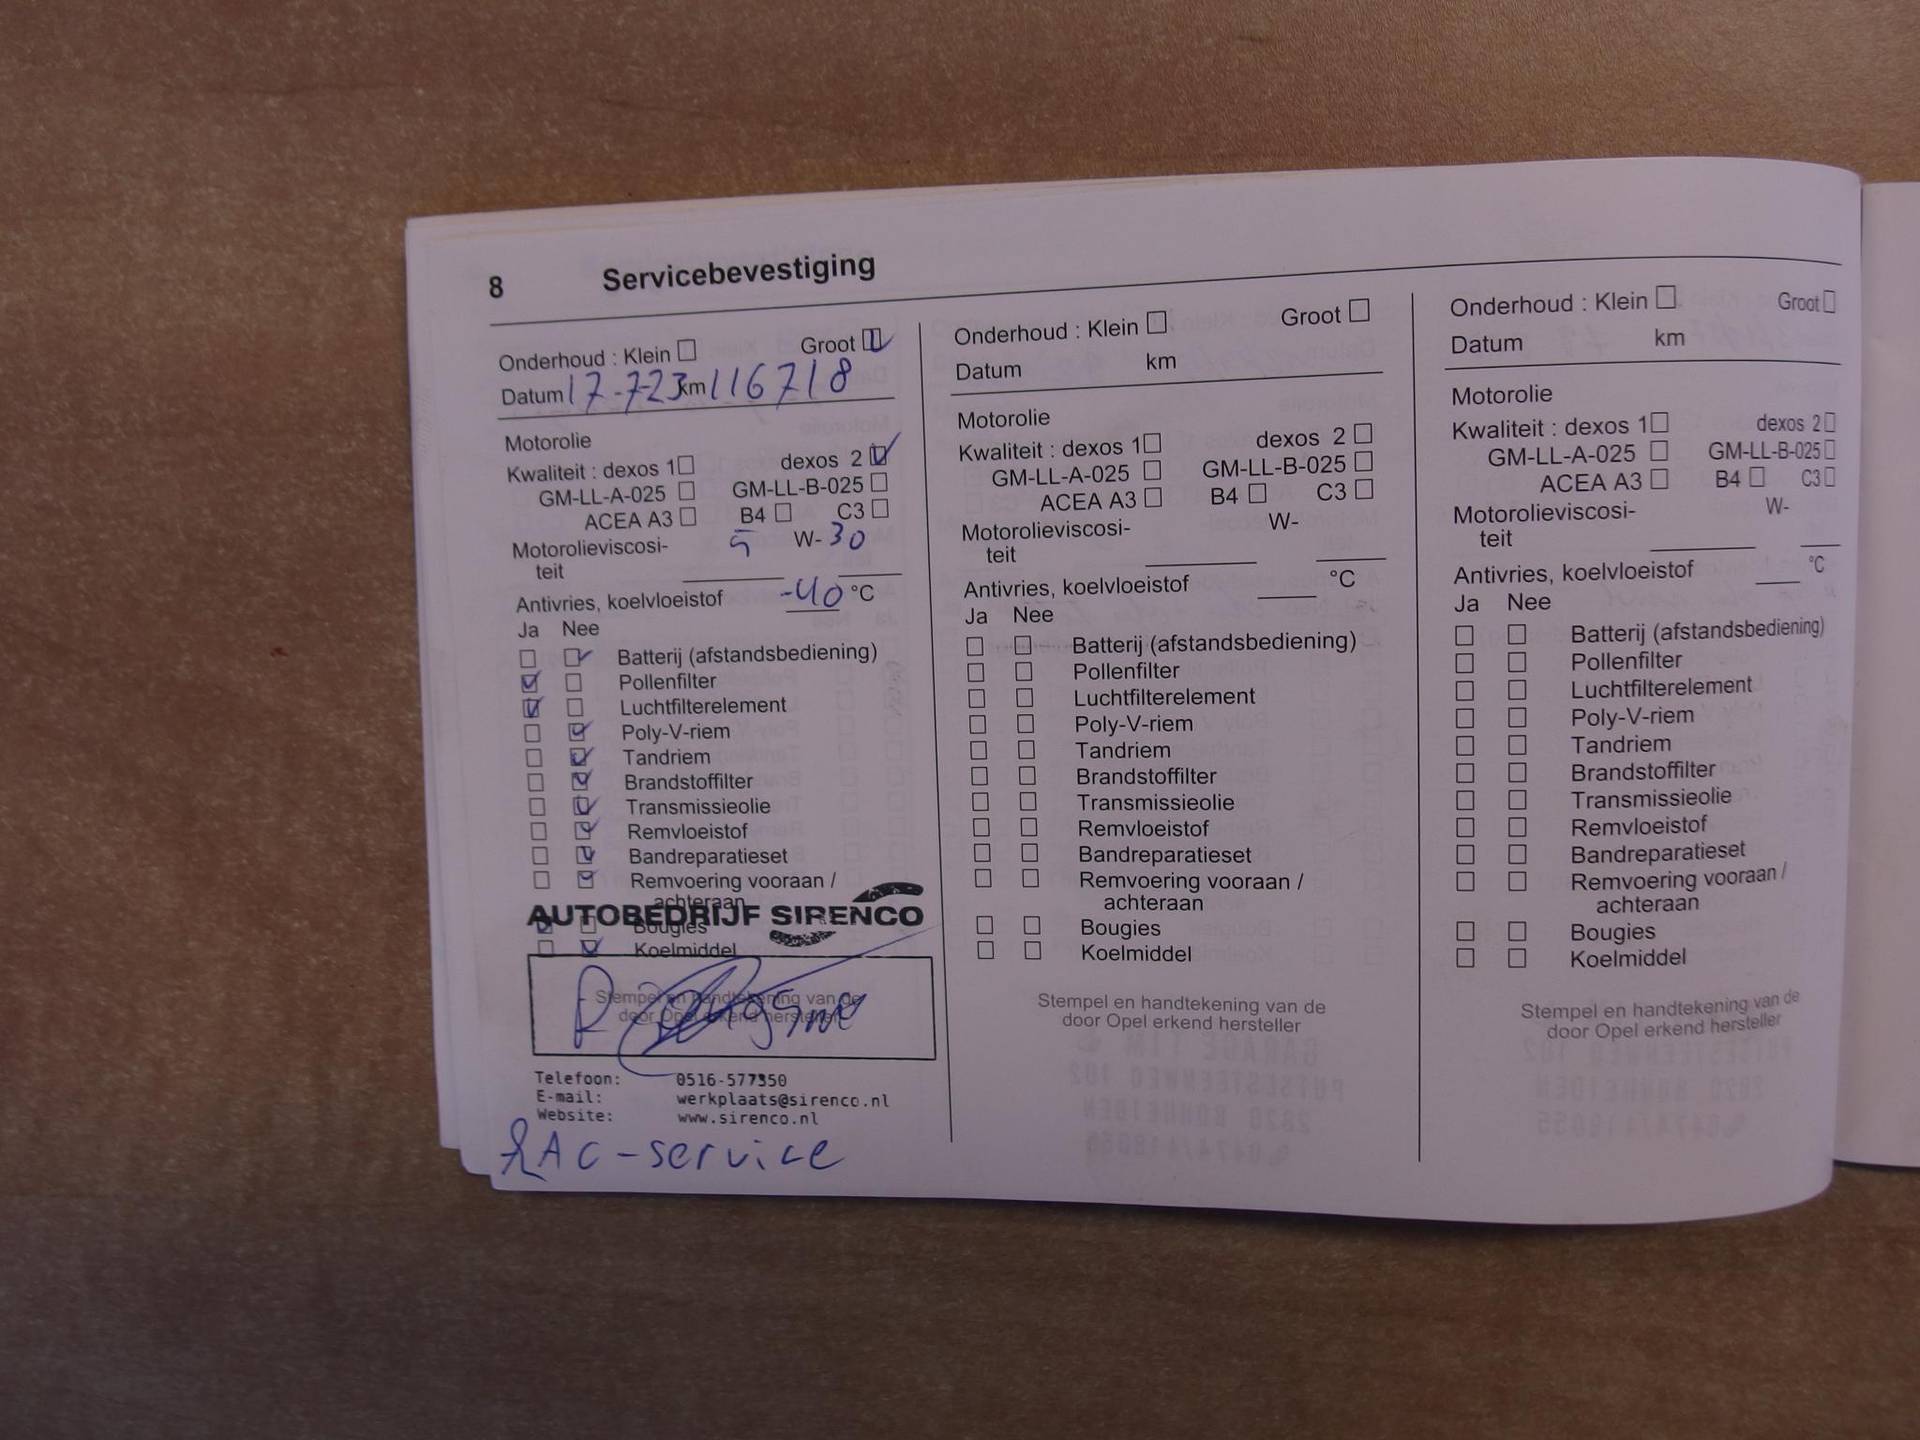 8 Servicebevestiging
Onderhoud : Klein Groot
Datum 17-7-23 km 116718
Motorolie
Kwaliteit : dexos 1 dexos 2
GM-LL-A-025 GM-LL-B-025
ACEA A3 B4 C3
Motorolieviscosi- 5 W-30
teit
Antivries, koelvloeistof -40 °C
Ja Nee
Batterij (afstandsbediening)
Pollenfilter
Luchtfilterelement
Poly-V-riem
Tandriem
Brandstoffilter
Transmissieolie
Remvloeistof
Bandreparatieset
Remvoering vooraan /
achteraan
AUTOBEDRIJF SIRENCO
Bougies
Koelmiddel
Stempel en handtekening van de
door Opel erkend hersteller
Telefoon: 0516-577350
E-mail: werkplaats@sirenco.nl
Website: www.sirenco.nl
AC-service
Onderhoud : Klein Groot
Datum km
Motorolie
Kwaliteit : dexos 1 dexos 2
GM-LL-A-025 GM-LL-B-025
ACEA A3 B4 C3
Motorolieviscosi- W-
teit
Antivries, koelvloeistof °C
Ja Nee
Batterij (afstandsbediening)
Pollenfilter
Luchtfilterelement
Poly-V-riem
Tandriem
Brandstoffilter
Transmissieolie
Remvloeistof
Bandreparatieset
Remvoering vooraan /
achteraan
Bougies
Koelmiddel
Stempel en handtekening van de
door Opel erkend hersteller
Onderhoud : Klein Groot
Datum km
Motorolie
Kwaliteit : dexos 1 dexos 2
GM-LL-A-025 GM-LL-B-025
ACEA A3 B4 C3
Motorolieviscosi- W-
teit
Antivries, koelvloeistof °C
Ja Nee
Batterij (afstandsbediening)
Pollenfilter
Luchtfilterelement
Poly-V-riem
Tandriem
Brandstoffilter
Transmissieolie
Remvloeistof
Bandreparatieset
Remvoering vooraan /
achteraan
Bougies
Koelmiddel
Stempel en handtekening van de
door Opel erkend hersteller